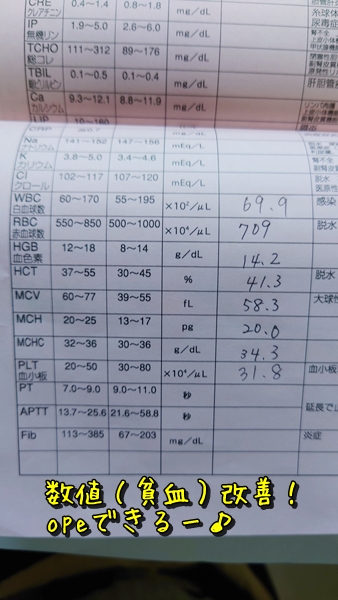 CRE 0.4～1.4 0.8～1.8 mg/dL
クレアチニン 糸球体
IP 1.9～5.0 2.6～6.0 mg/dL 腎不全
無機リン 上皮小体
TCHO 111～312 89～176 mg/dL 甲状腺機能
総コレ 副腎皮質機能
TBIL 0.1～0.5 0.1～0.4 mg/dL 肝胆管
総ビリルビン
Ca 9.3～12.1 8.8～11.9 mg/dL リンパ肉腫
カルシウム 上皮小体機能
LIP 10～160
Na 141～152 147～156 mEq/L
ナトリウム
K 3.8～5.0 3.4～4.6 mEq/L 腎不全
カリウム 副腎皮質機
Cl 102～117 107～120 mEq/L 脱水
クロール 医原性
WBC 60～170 55～195 ×10²/μL 69.9 感染
白血球数
RBC 550～850 500～1000 ×10⁴/μL 709 脱水
赤血球数
HGB 12～18 8～14 g/dL 14.2
血色素
HCT 37～55 30～45 % 41.3 脱水
MCV 60～77 39～55 fL 58.3 大球性
MCH 20～25 13～17 pg 20.0
MCHC 32～36 30～36 g/dL 34.3
PLT 20～50 30～80 ×10⁴/μL 31.8 血小板
血小板
PT 7.0～9.0 9.0～11.0 秒
APTT 13.7～25.6 21.6～58.8 秒 延長で
Fib 113～385 67～203 mg/dL 炎症
数値（貧血）改善！
opeできるー♪